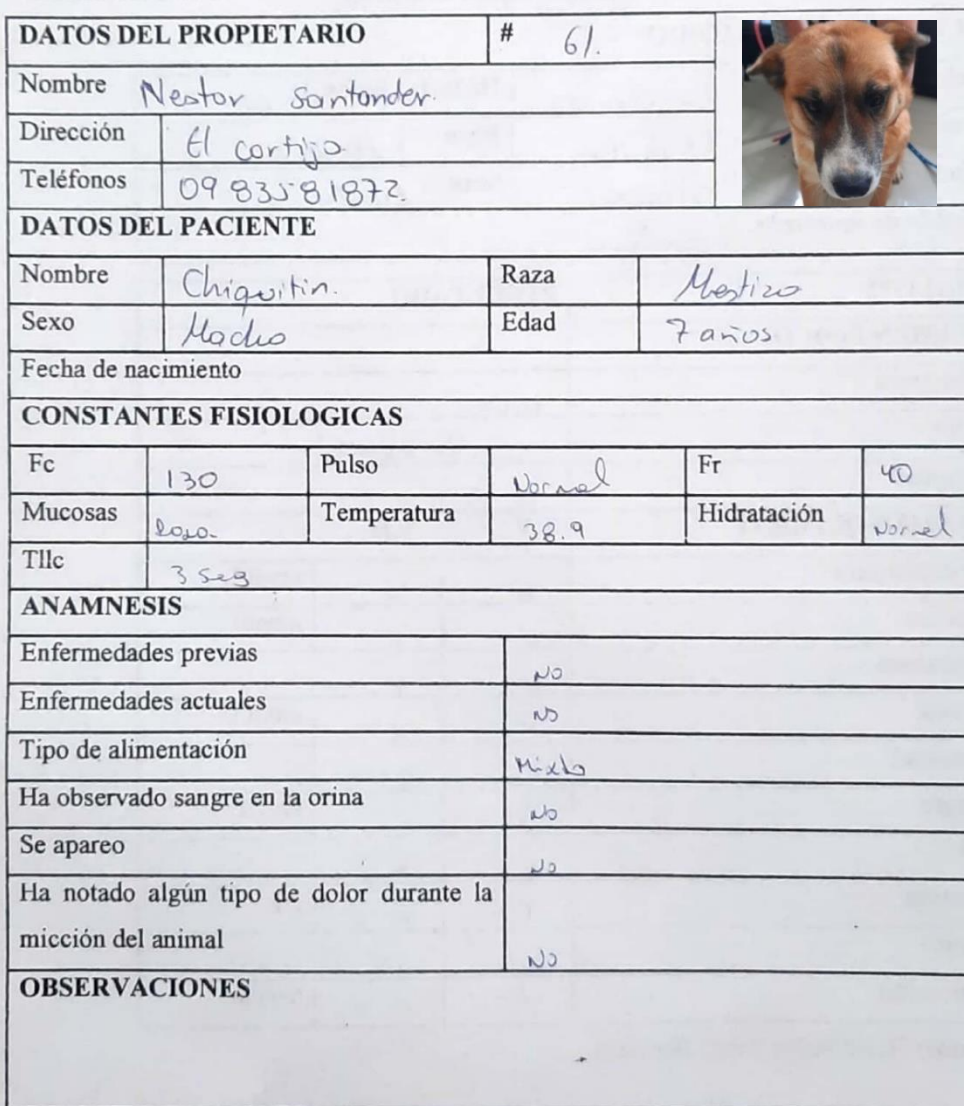 DATOS DEL PROPIETARIO # 61.
Nombre Nestor Santander.
Dirección El cortijo
Teléfonos 0983581872.
DATOS DEL PACIENTE
Nombre Chiquitin. Raza Mestizo
Sexo Macho Edad 7 años
Fecha de nacimiento
CONSTANTES FISIOLOGICAS
Fc 130 Pulso Normal Fr 40
Mucosas Rosa. Temperatura 38.9 Hidratación Normal
Tllc 3 seg
ANAMNESIS
Enfermedades previas NO
Enfermedades actuales NO
Tipo de alimentación Mixto
Ha observado sangre en la orina NO
Se apareo NO
Ha notado algún tipo de dolor durante la
micción del animal NO
OBSERVACIONES